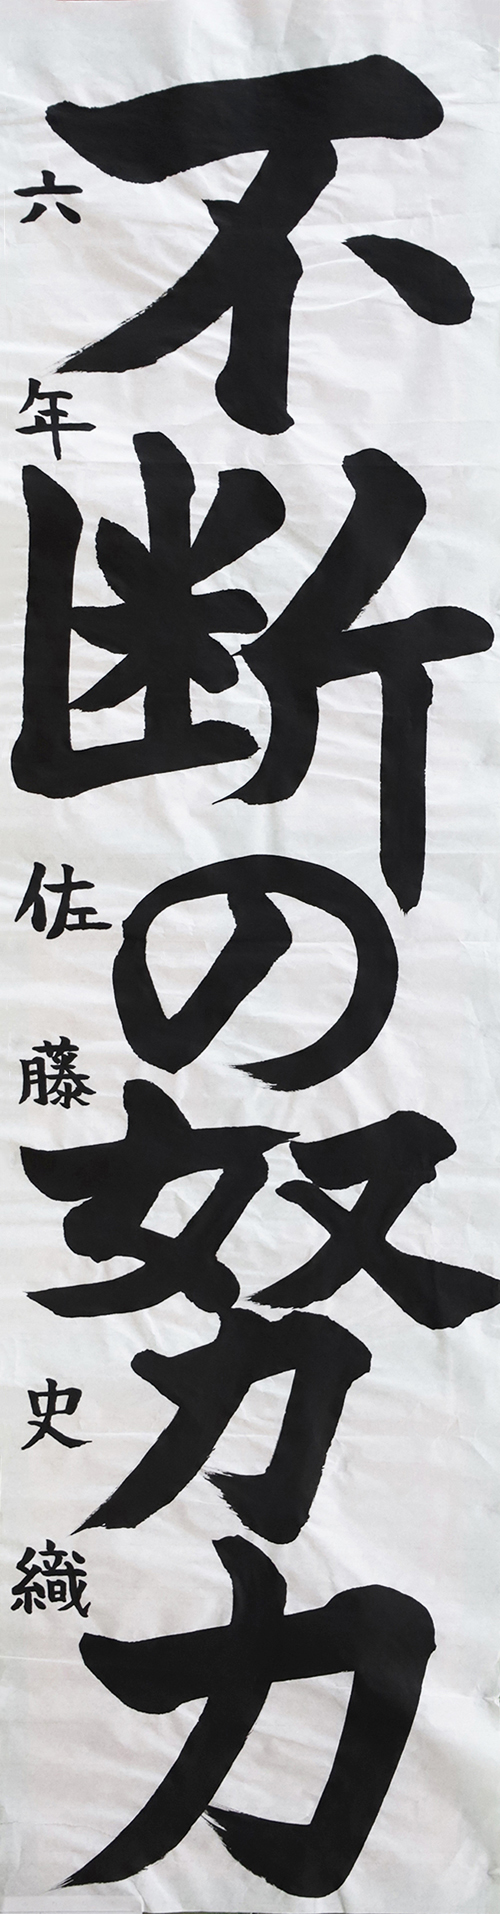 不断の努力
六年 佐藤史織